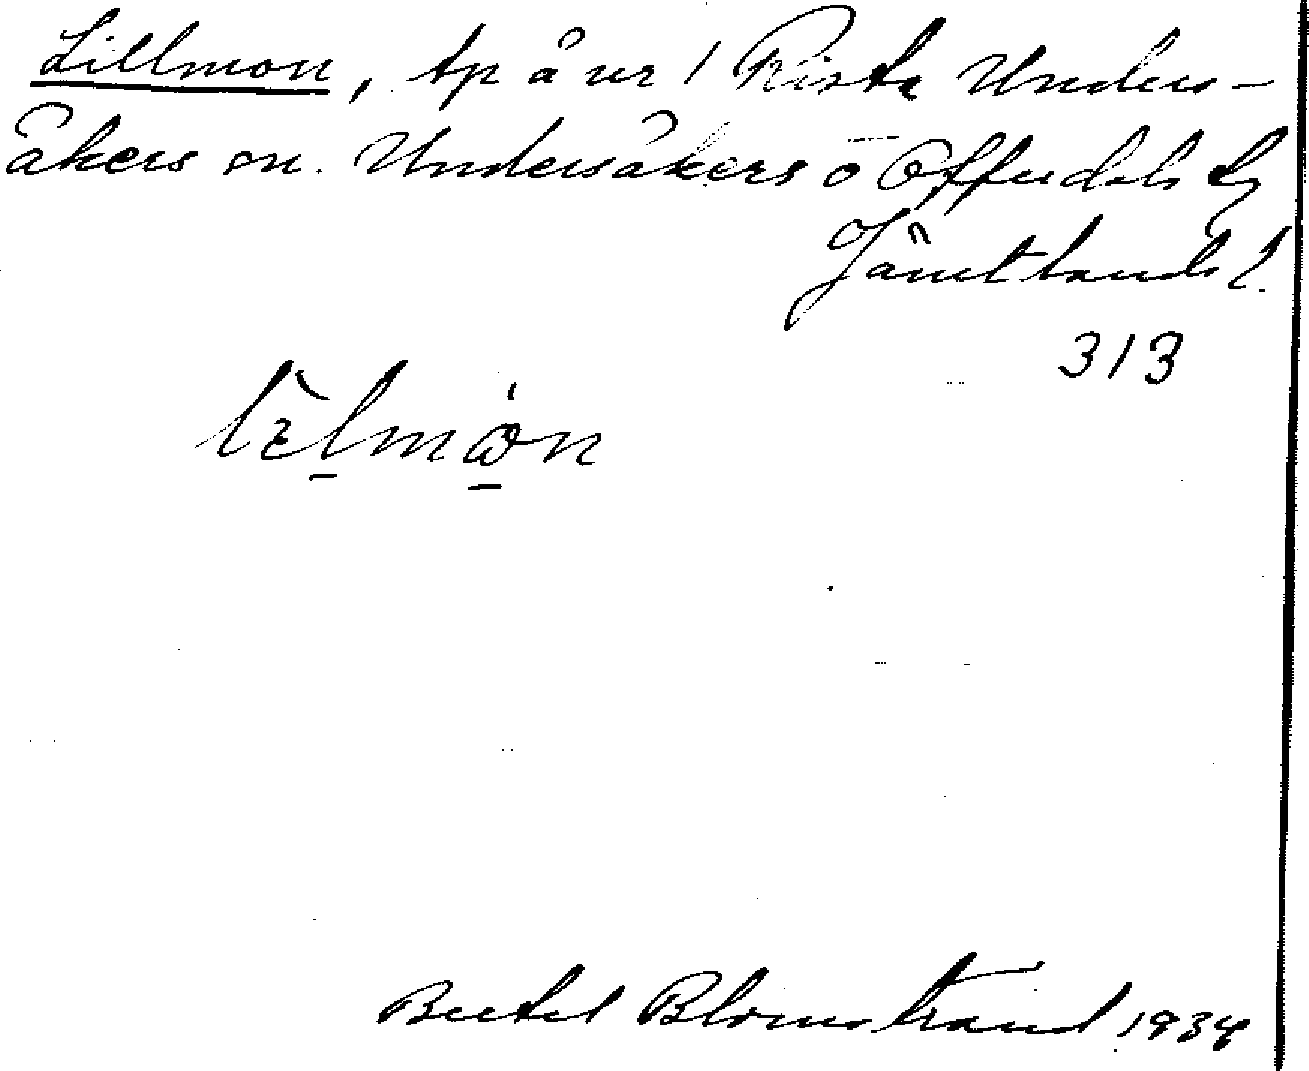 Lillmon, tp å nr 1 Rista Unders-
åkers sn. Undersåkers o Offerdals tg
Jämtlands l.
313
Bertel Blomstrand 1934